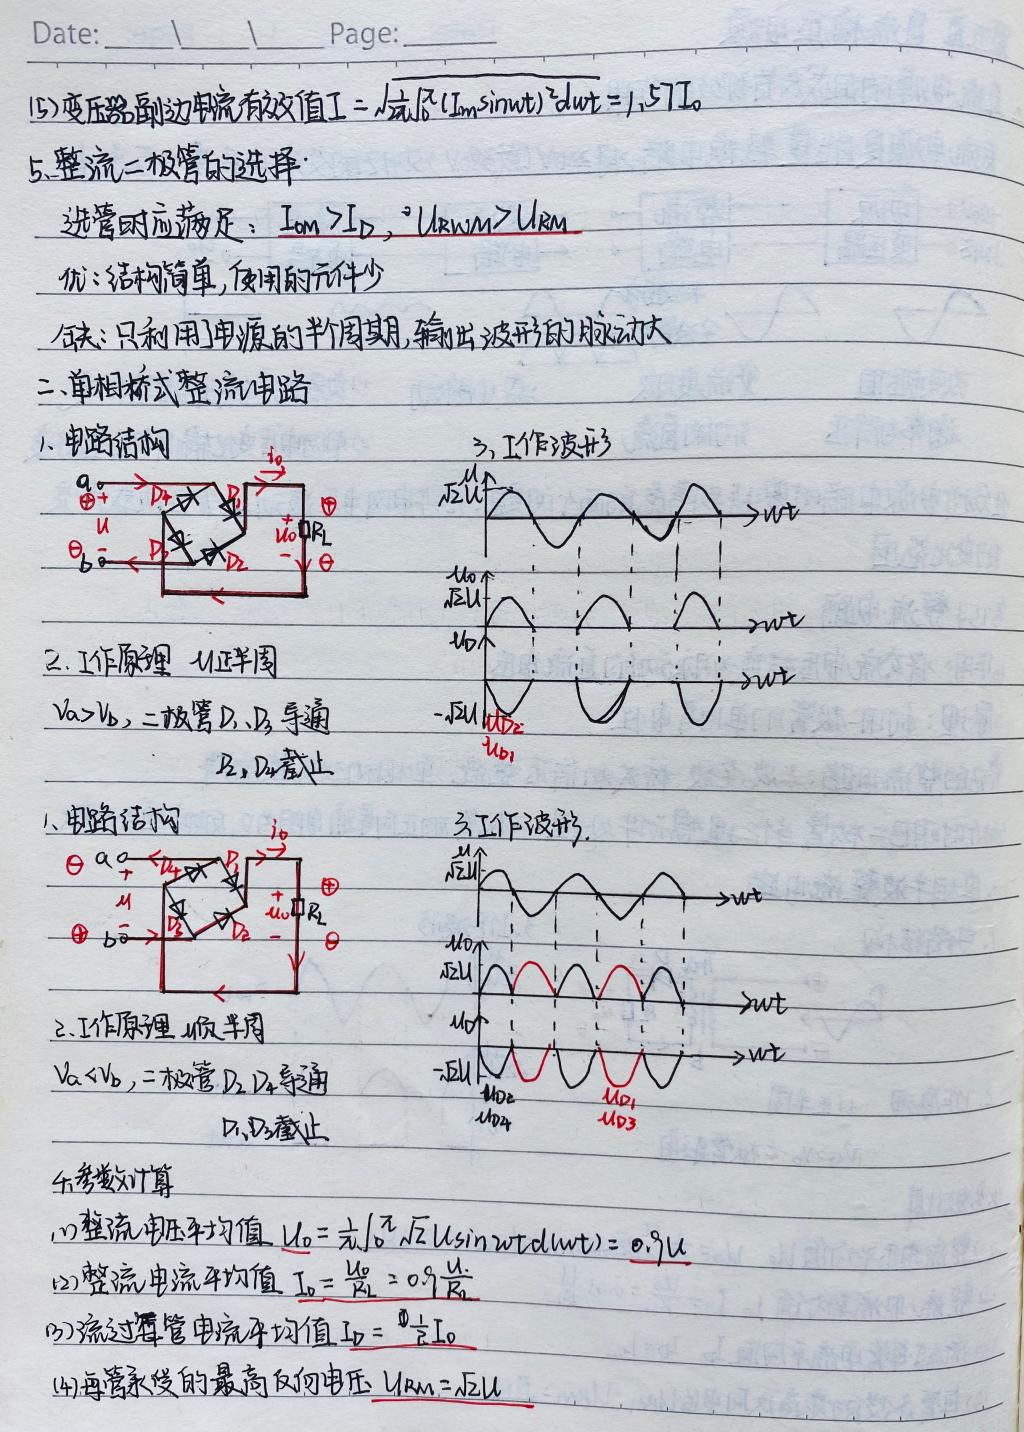 Date:____\____\____ Page:______
(5)变压器副边电流有效值I=√1/2π∫₀^π(Imsinwt)²dwt=1.57I₀
5.整流二极管的选择.
选管时应满足: IOM>ID, URWM>URM
优:结构简单,使用的元件少
缺:只利用了电源的半个周期,输出波形的脉动大
二.单相桥式整流电路
1.电路结构
a
b
⊕
⊖
+
u
-
D4
D1
D3
D2
i₀
+
u₀
-
RL
⊕
⊖
3,工作波形
u
√2U
wt
u₀
√2U
wt
uD
wt
-√2U
uD2
uD1
2.工作原理 u正半周
Va>Vb,二极管D1、D3导通
D2,D4截止
1.电路结构
⊖
a
+
u
-
⊕
b
D4
D1
D3
D2
i₀
+
u₀
-
RL
⊕
⊖
3.工作波形.
u
√2U
wt
u₀
√2U
wt
uD
wt
-√2U
uD2
uD4
uD1
uD3
2.工作原理 u负半周
Va<Vb,二极管D2 D4导通
D1,D3截止
4.参数计算
(1)整流电压平均值 U₀=1/π∫₀^π√2Usinwtd(wt)=0.9U
(2)整流电流平均值 I₀=U₀/RL=0.9U/RL
(3)流过每管电流平均值ID=1/2I₀
(4)每管承受的最高反向电压 URM=√2U